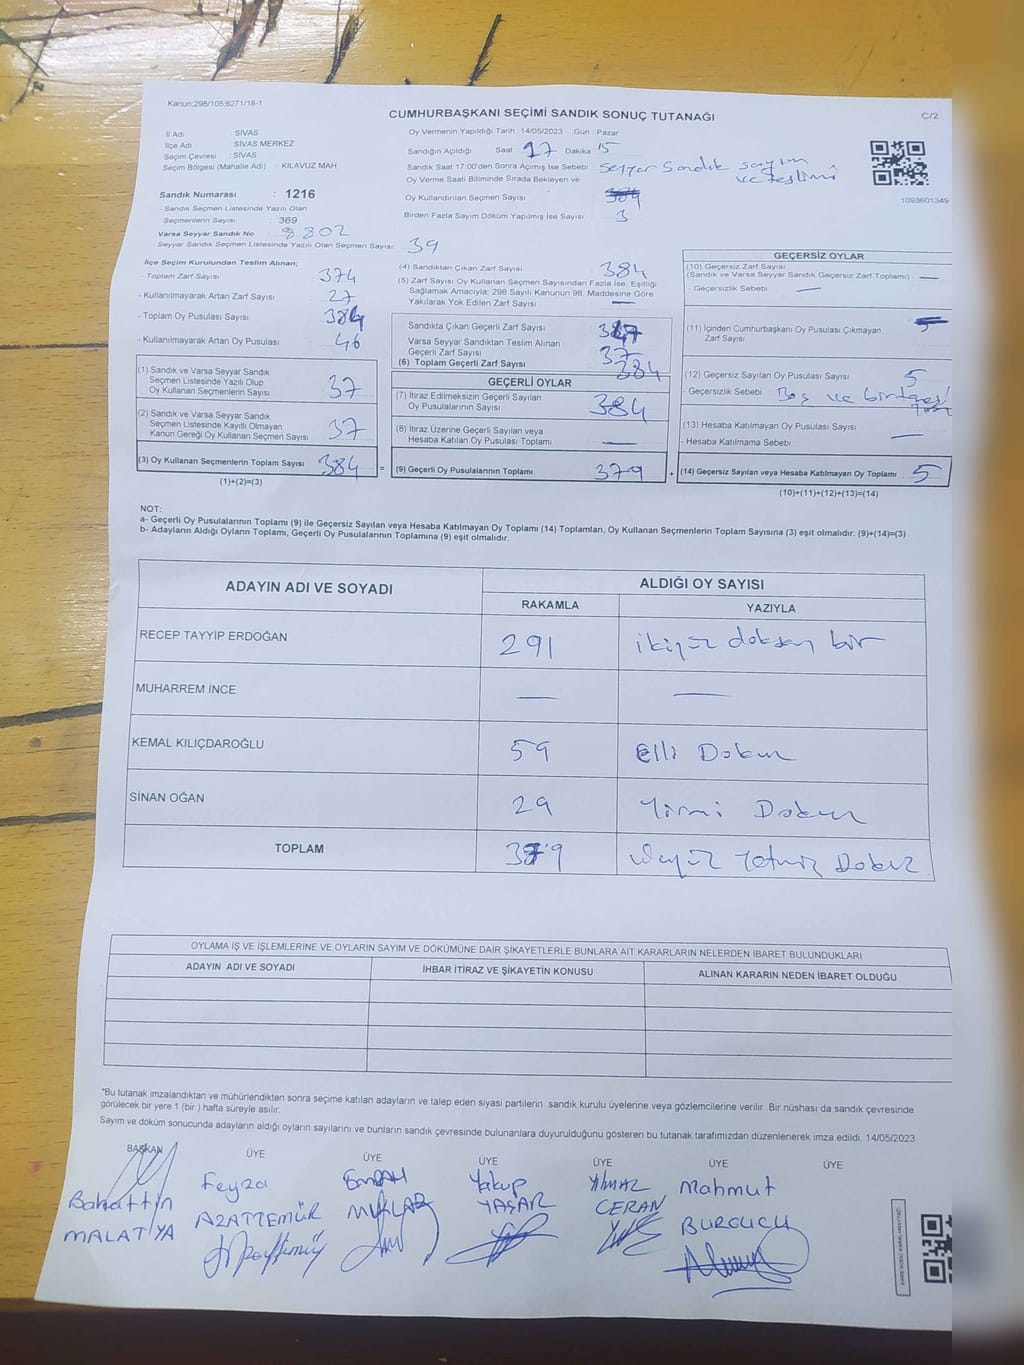 Kanun;298/105;6271/18-1
CUMHURBAŞKANI SEÇİMİ SANDIK SONUÇ TUTANAĞI
C/2
İl Adı : SİVAS
İlçe Adı : SİVAS MERKEZ
Seçim Çevresi : SİVAS
Seçim Bölgesi (Mahalle Adı) : KILAVUZ MAH
Sandık Numarası : 1216
- Sandık Seçmen Listesinde Yazılı Olan
Seçmenlerin Sayısı : 369
Varsa Seyyar Sandık No 8802
- Seyyar Sandık Seçmen Listesinde Yazılı Olan Seçmen Sayısı: 39
Oy Vermenin Yapıldığı Tarih :14/05/2023 Gün : Pazar
Sandığın Açıldığı Saat 17 Dakika 15
Sandık Saat 17:00'den Sonra Açılmış İse Sebebi : Seyyar Sandık sayım ve teslimi
Oy Verme Saati Bitiminde Sırada Bekleyen ve
Oy Kullandırılan Seçmen Sayısı 384
Birden Fazla Sayım Döküm Yapılmış İse Sayısı 3
1093601349
İlçe Seçim Kurulundan Teslim Alınan;
- Toplam Zarf Sayısı 374
- Kullanılmayarak Artan Zarf Sayısı 27
- Toplam Oy Pusulası Sayısı 384
- Kullanılmayarak Artan Oy Pusulası 46
(1) Sandık ve Varsa Seyyar Sandık
Seçmen Listesinde Yazılı Olup
Oy Kullanan Seçmenlerin Sayısı 37
(2) Sandık ve Varsa Seyyar Sandık
Seçmen Listesinde Kayıtlı Olmayan
Kanun Gereği Oy Kullanan Seçmen Sayısı 37
(3) Oy Kullanan Seçmenlerin Toplam Sayısı 384 =
(1)+(2)=(3)
(4) Sandıktan Çıkan Zarf Sayısı 384
(5) Zarf Sayısı Oy Kullanan Seçmen Sayısından Fazla İse, Eşitliği
Sağlamak Amacıyla; 298 Sayılı Kanunun 98. Maddesine Göre
Yakılarak Yok Edilen Zarf Sayısı —
Sandıkta Çıkan Geçerli Zarf Sayısı 347
Varsa Seyyar Sandıktan Teslim Alınan
Geçerli Zarf Sayısı 37
(6) Toplam Geçerli Zarf Sayısı 384
GEÇERLİ OYLAR
(7) İtiraz Edilmeksizin Geçerli Sayılan
Oy Pusulalarının Sayısı 384
(8) İtiraz Üzerine Geçerli Sayılan veya
Hesaba Katılan Oy Pusulası Toplamı —
(9) Geçerli Oy Pusulalarının Toplamı 379 +
GEÇERSİZ OYLAR
(10) Geçersiz Zarf Sayısı
(Sandık ve Varsa Seyyar Sandık Geçersiz Zarf Toplamı) —
- Geçersizlik Sebebi : —
(11) İçinden Cumhurbaşkanı Oy Pusulası Çıkmayan
Zarf Sayısı
(12) Geçersiz Sayılan Oy Pusulası Sayısı 5
- Geçersizlik Sebebi : Boş ve
(13) Hesaba Katılmayan Oy Pusulası Sayısı —
- Hesaba Katılmama Sebebi :
(14) Geçersiz Sayılan veya Hesaba Katılmayan Oy Toplamı 5
(10)+(11)+(12)+(13)=(14)
NOT:
a- Geçerli Oy Pusulalarının Toplamı (9) ile Geçersiz Sayılan veya Hesaba Katılmayan Oy Toplamı (14) Toplamları, Oy Kullanan Seçmenlerin Toplam Sayısına (3) eşit olmalıdır. (9)+(14)=(3)
b- Adayların Aldığı Oyların Toplamı, Geçerli Oy Pusulalarının Toplamına (9) eşit olmalıdır.
ADAYIN ADI VE SOYADI
ALDIĞI OY SAYISI
RAKAMLA YAZIYLA
RECEP TAYYİP ERDOĞAN 291 ikiyüz doksan bir
MUHARREM İNCE — —
KEMAL KILIÇDAROĞLU 59 Elli Dokuz
SİNAN OĞAN 29 Yirmi Dokuz
TOPLAM 379 üçyüz Yetmiş Dokuz
OYLAMA İŞ VE İŞLEMLERİNE VE OYLARIN SAYIM VE DÖKÜMÜNE DAİR ŞİKAYETLERLE BUNLARA AİT KARARLARIN NELERDEN İBARET BULUNDUKLARI
ADAYIN ADI VE SOYADI İHBAR İTİRAZ VE ŞİKAYETİN KONUSU ALINAN KARARIN NEDEN İBARET OLDUĞU
*Bu tutanak imzalandıktan ve mühürlendikten sonra seçime katılan adayların ve talep eden siyasi partilerin sandık kurulu üyelerine veya gözlemcilerine verilir. Bir nüshası da sandık çevresinde
görülecek bir yere 1 (bir ) hafta süreyle asılır.
Sayım ve döküm sonucunda adayların aldığı oyların sayılarını ve bunların sandık çevresinde bulunanlara duyurulduğunu gösteren bu tutanak tarafımızdan düzenlenerek imza edildi. 14/05/2023
BAŞKAN ÜYE ÜYE ÜYE ÜYE ÜYE ÜYE
Bahattin Feyza Yakup YILMAZ Mahmut
MALATYA AZATTEMÜR YAŞAR CERAN BURGUCU